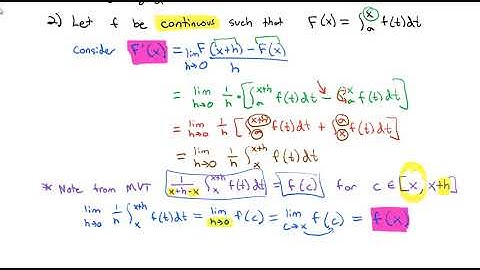 2) Let f be continuous such that F(x) = ∫_a^x f(t)dt
Consider F'(x) = lim_{h→0} F(x+h) - F(x) / h
= lim_{h→0} 1/h · [∫_a^{x+h} f(t)dt - ∫_a^x f(t)dt]
= lim_{h→0} 1/h [∫_a^{x+h} f(t)dt + ∫_x^a f(t)dt]
= lim_{h→0} 1/h ∫_x^{x+h} f(t)dt
* Note from MVT 1/(x+h-x) ∫_x^{x+h} f(t)dt = f(c) for c ∈ [x, x+h]
lim_{h→0} 1/h ∫_x^{x+h} f(t)dt = lim_{h→0} f(c) = lim_{c→x} f(c) = f(x)